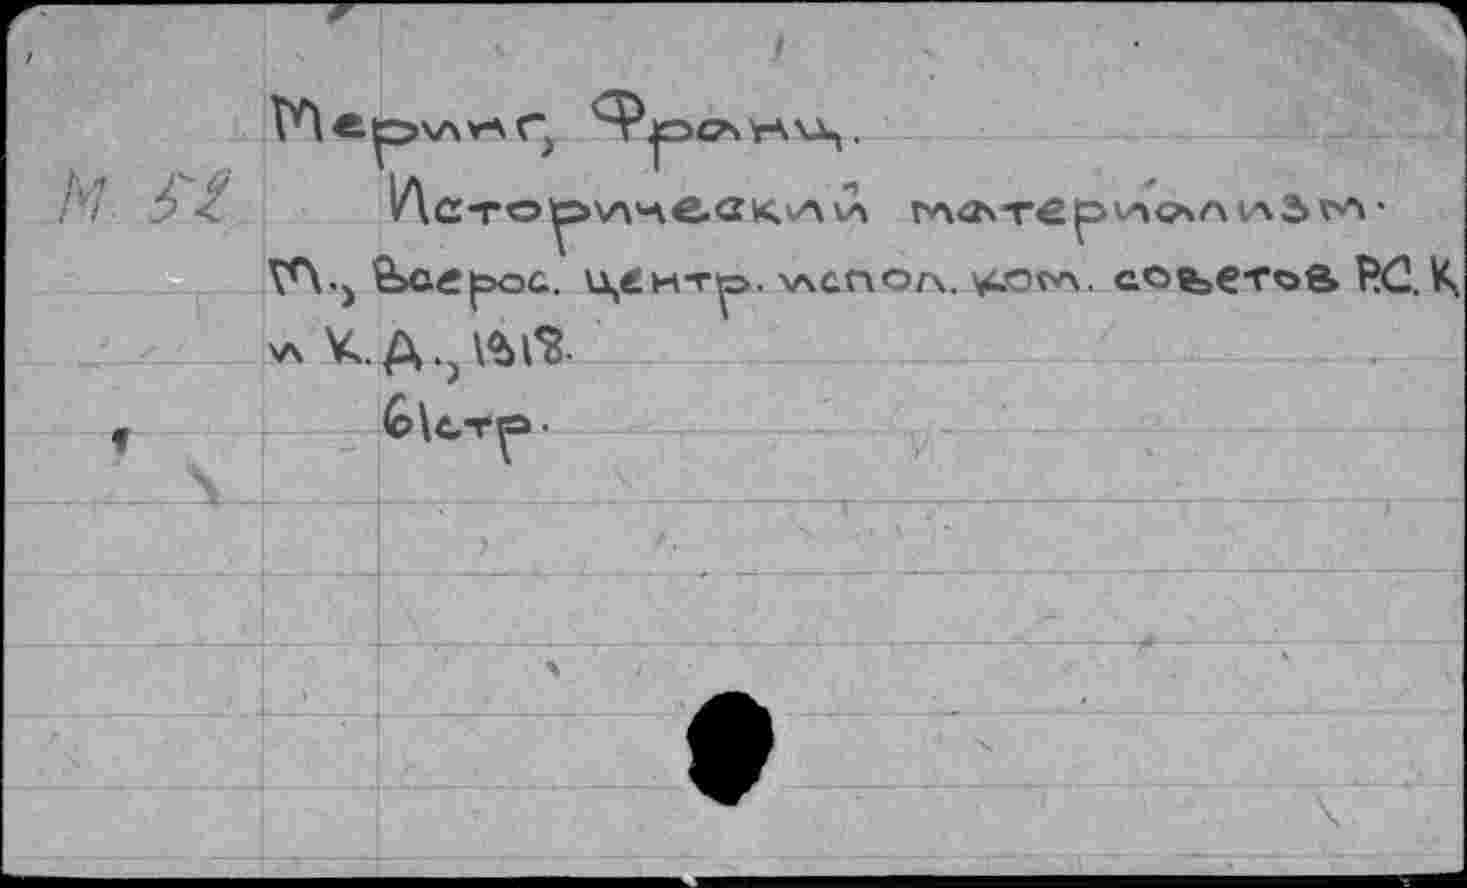 Меринг, Франц.
М 52
Исторический материализм.
М., Всерос. центр. испол. ком. советов Р.С.К.
и К.Д.,
61стр.